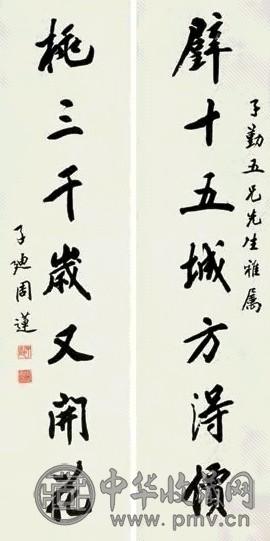 子勤五兄先生雅属
璧十五城方得價
桃三千歲又開花
子迪周蓮
中华收藏网
www.pmv.cn